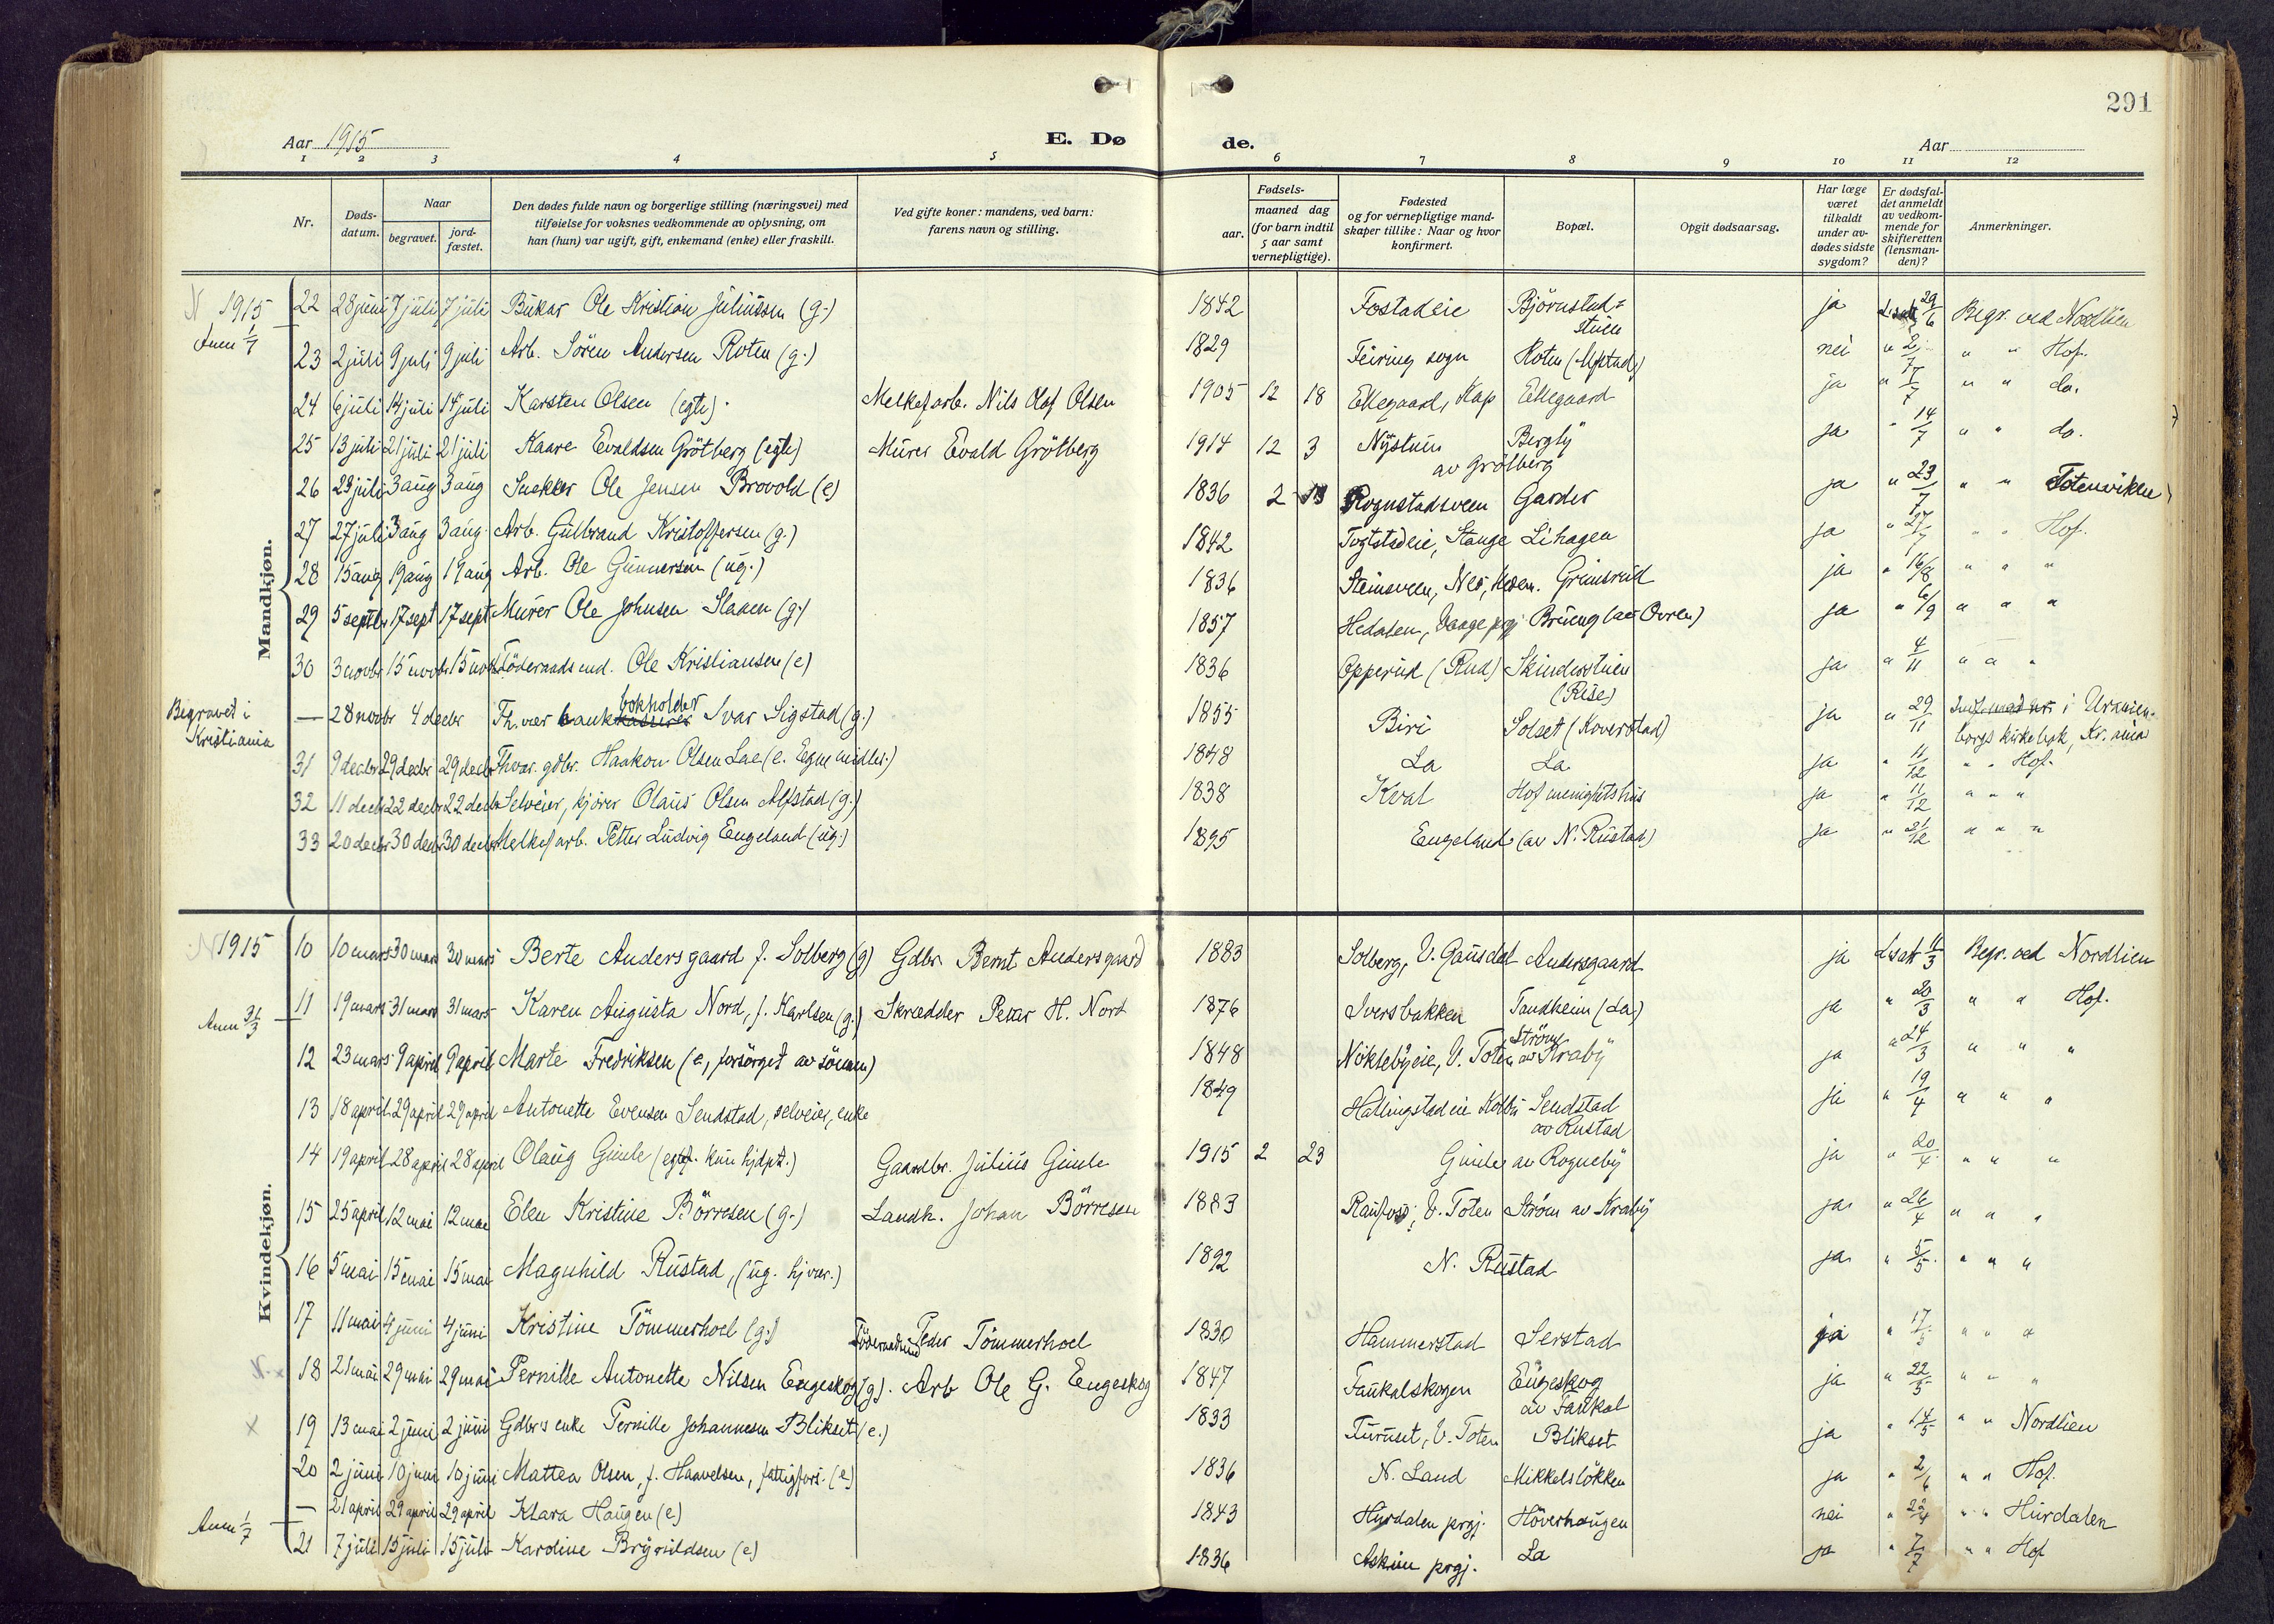 291
Aar 1915
E. Dø
de.
Aar
1 2 3 4 5 6 7 8 9 10 11 12
Nr.
Døds-
datum.
Naar
begravet.
jord-
fæstet.
Den dødes fulde navn og borgerlige stilling (næringsvei) med
tilføielse for voksnes vedkommende av oplysning, om
han (hun) var ugift, gift, enkemand (enke) eller fraskilt.
Ved gifte koner: mandens, ved barn:
farens navn og stilling.
Fødsels-
aar.
maaned dag
(for barn indtil
5 aar samt
vernepligtige).
Fødested
og for vernepligtige mand-
skaper tillike: Naar og hvor
konfirmert.
Bopæl.
Opgit dødsaarsag.
Har læge
været
tilkaldt
under av-
dødes sidste
sygdom?
Er dødsfal-
det anmeldt
av vedkom-
mende for
skifteretten
(lensman-
den)?
Anmerkninger.
Mandkjøn.
N 1915 22 28 juni 7 juli 7 juli Büker Ole Kristian Juliussen (g.) 1842 Fostadeie Björnstad-
stuen ja 29/6 Begr. ved Nordlien
Anm 1/7
23 2 juli 9 juli 9 juli Arb. Sören Andersen Roten (g.) 1829 Feiring sogn Roten (Alfstad) nei " 2/7 " " Hof.
24 6 juli 14 juli 14 juli Karsten Olsen (egte). Melkefarb. Nils Olaf Olsen 1905 12 18 Ellegaard, Kap Ellegaard ja " 7/7 " " do.
25 13 juli 21 juli 21 juli Kaare Evaldsen Grötberg (egte) Murer Evald Grötberg 1914 12 3 Nystuen Bergly
av Grötberg ja " 14/7 " " do.
26 23 juli 3 aug 3 aug Snekker Ole Jensen Brovold (e) 1836 2 13 Rognstadsveen Garder ja " 23/7 " " Totenviken
27 27 juli 3 aug 3 aug. Arb. Gulbrand Kristoffersen (g.) 1842 Stange Lihagen ja " 27/7 " " Hof.
28 15 aug 19 aug 19 aug Arb. Ole Gunnersen (ug.) 1836 Steinsveen, Nes, Hedem. Grimsrud ja " 16/8 " " "
29 5 septbr 17 sept 17 sept Murer Ole Johnsen Slaaen (g.) 1857 Hedalen, Vaage prgj Brueng (av Ovren) ja " 6/9 " " "
30 3 novbr 15 novbr 15 novbr Föderaadsmd. Ole Kristiansen (e) 1836 Opperud (Rud) Skinderstuen
(Rise) ja " 4/11 " " "
Begravet i
Kristiania
— 28 novbr 4 decbr Fh. vær. bankkasserer bokholder Ivar Sigstad (g.) 1855 Biri Solset (Koverstad) ja " 29/11 Indf. med nr. i Uranien-
borgs kirkebok, Kr.ania
31 9 decbr 29 decbr 29 decbr Fhvær. gdbr. Haakon Olsen Lae (e. Egne midler.) 1848 La La ja " 11/12 " " Hof.
32 11 decbr 22 decbr 22 decbr Selveier, kjörer Olaus Olsen Alfstad (g.) 1838 Kval Hof menighetshus ja " 11/12 " " "
33 20 decbr 30 decbr 30 decbr Melkefarb. Petter Ludvig Engeland (ug.) 1895 Engeland (av N. Rustad) ja " 21/12 " " "
Kvindekjøn.
N 1915 10 10 mars 30 mars 30 mars Berte Andersgaard f. Solberg (g) Gdbr. Bernt Andersgaard 1883 Solberg, V. Gausdal Andersgaard ja 11/3 Begr. ved Nordlien
Anm 31/3
11 19 mars 31 mars 31 mars Karen Augusta Nord, f. Karlsen (g.) Skrædder Peder H. Nord 1876 Iversbakken Tandheim (La) ja " 20/3 " " Hof.
12 23 mars 9 april 9 april Marte Fredriksen (e, forsörget av sönnen) 1848 Nöklebyeie, V. Toten Ström
av Kraby ja " 24/3 " " "
13 18 april 29 april 29 april Antonette Evensen Sendstad, selveier, enke 1849 Hallingstadeie Kolbu Sendstad
av Rustad ja " 19/4 " " "
14 19 april 28 april 28 april Olaug Gimle (egtef. kun hjdpt.) Gaardbr. Julius Gimle 1915 2 23 Gimle av Rogneby ja " 20/4 " " "
15 25 april 12 mai 12 mai Elen Kristine Börresen (g.) Landh. Johan Börresen 1883 Raufoss, V. Toten Ström av Kraby ja " 26/4 " " "
16 5 mai 15 mai 15 mai Magnhild Rustad, (ug. hjvær.) 1892 N. Rustad ja " 5/5 " " "
17 11 mai 4 juni 4 juni Kristine Tömmerhoel (g.) Föderaadsmd Peder Tömmerhoel 1830 Hammerstad Serstad ja " 17/5 " " "
N. x 18 21 mai 29 mai 29 mai Pernille Antonette Nilsen Engeskog (g.) Arb Ole G. Engeskog 1847 Faukalskogen Engeskog
av Faukal ja " 22/5 " " "
x 19 13 mai 2 juni 2 juni Gdbr's enke Pernille Johannesen Blikset (e.) 1833 Furuset, V. Toten Blikset ja " 14/5 " " Nordlien
20 2 juni 10 juni 10 juni Mattea Olsen, f. Haavelsen, fattigfors. (e) 1836 N. Land Mikkelslökken ja " 2/6 " " Hof.
— 21 april 29 april 29 april Klara Haugen (e) 1843 Hurdalen prgj. Höverhaugen nei " 22/4 " " Hurdalen
Anm 1/7
21 7 juli 15 juli 15 juli Karoline Brynildsen (e) 1836 Askim prgj. La ja " 7/7 " " Hof